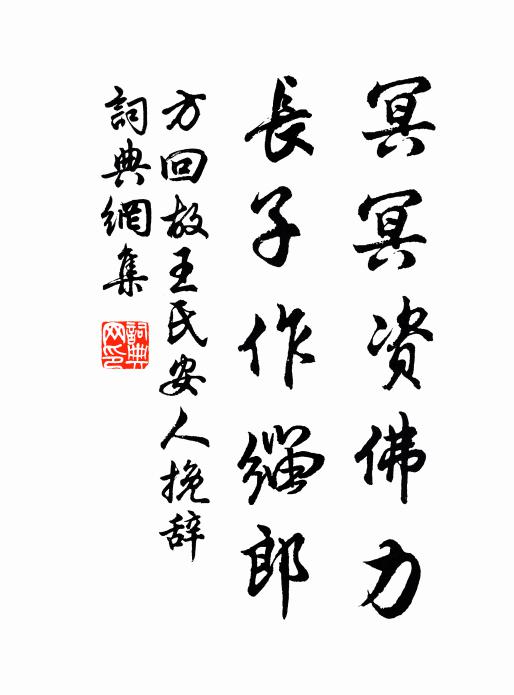 冥冥资佛力
長子作缁郎
方回故王氏安人挽辞
詞典網集
詞典网印